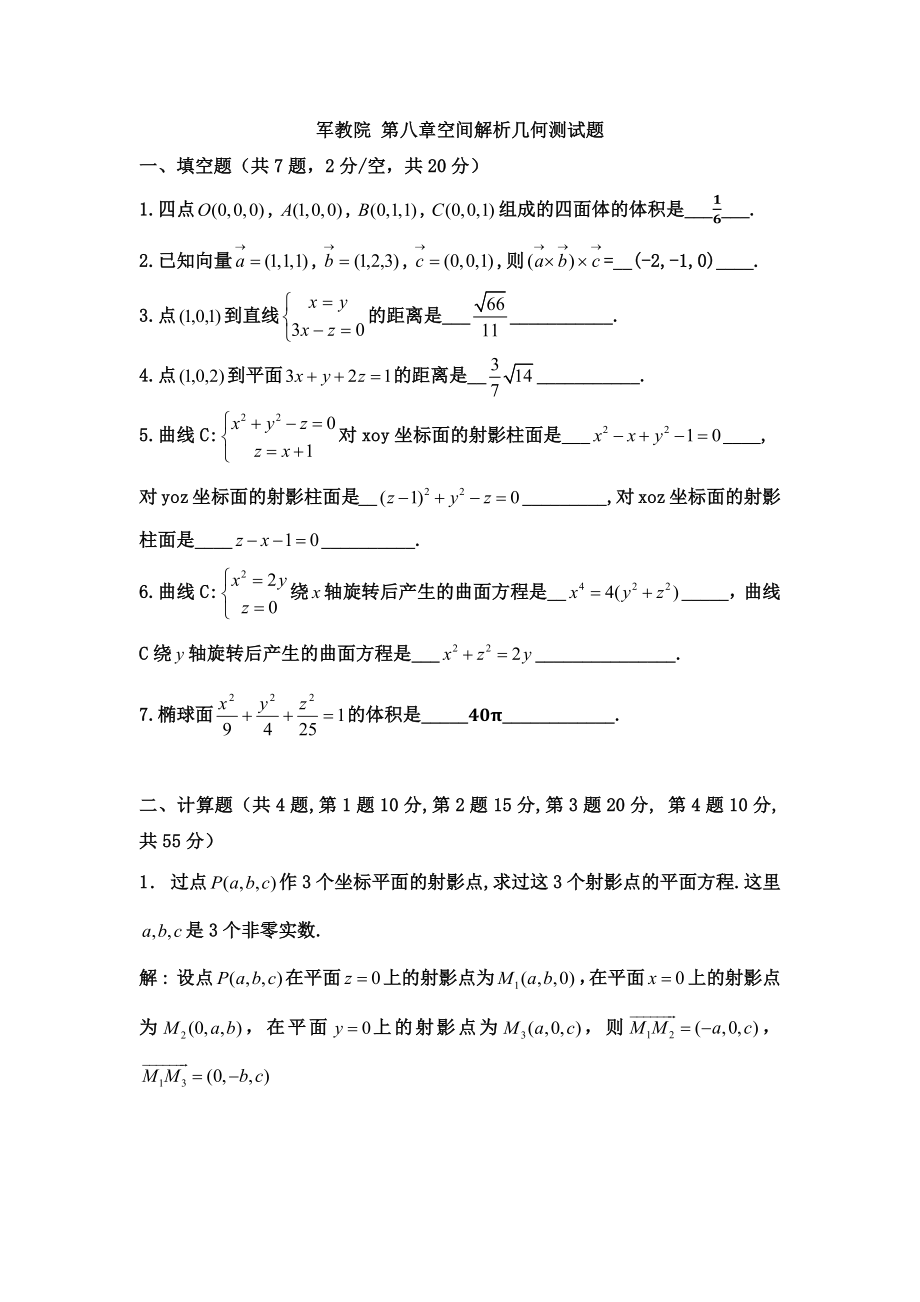 军教院 第八章空间解析几何测试题
一、填空题（共 7 题，2 分/空，共 20 分）
1.四点O(0,0,0)，A(1,0,0)，B(0,1,1)，C(0,0,1)组成的四面体的体积是___1/6___.
2.已知向量a→=(1,1,1)，b→=(1,2,3)，c→=(0,0,1),则(a→×b→)×c→=__(-2,-1,0)____.
3.点(1,0,1)到直线{x=y 3x−z=0的距离是___√66/11___________.
4.点(1,0,2)到平面3x+y+2z=1的距离是__3/7√14___________.
5.曲线 C:{x²+y²−z=0 z=x+1对 xoy 坐标面的射影柱面是___x²−x+y²−1=0____,
对 yoz 坐标面的射影柱面是__(z−1)²+y²−z=0_________,对 xoz 坐标面的射影
柱面是____z−x−1=0__________.
6.曲线 C:{x²=2y z=0绕x轴旋转后产生的曲面方程是__x⁴=4(y²+z²)_____，曲线
C 绕y轴旋转后产生的曲面方程是___x²+z²=2y_______________.
7.椭球面x²/9+y²/4+z²/25=1的体积是_____40π____________.
二、计算题（共 4 题,第 1 题 10 分,第 2 题 15 分,第 3 题 20 分, 第 4 题 10 分,
共 55 分）
1. 过点P(a,b,c)作 3 个坐标平面的射影点,求过这 3 个射影点的平面方程.这里
a,b,c是 3 个非零实数.
解: 设点P(a,b,c)在平面z=0上的射影点为M₁(a,b,0)，在平面x=0上的射影点
为M₂(0,a,b)，在平面y=0上的射影点为M₃(a,0,c)，则M₁M₂→=(−a,0,c)，
M₁M₃→=(0,−b,c)